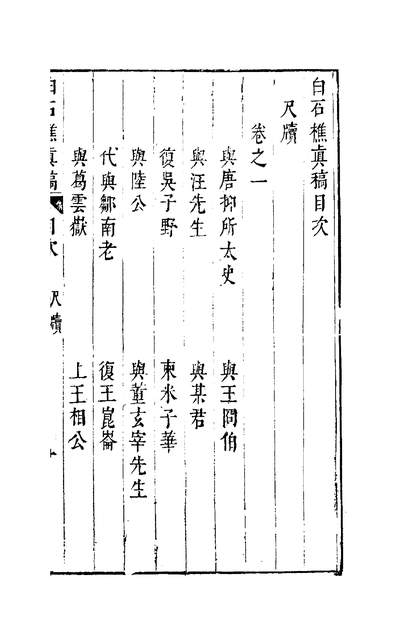 白石樵真稿目次
尺牘
卷之一
與唐抑所太史　與王冏伯
與汪先生　與某君
復吳子野　柬米子華
與陸公　與董玄宰先生
代與鄒南老　復王崑崙
與葛雲嶽　上王相公
白石樵真稿　目次　尺牘